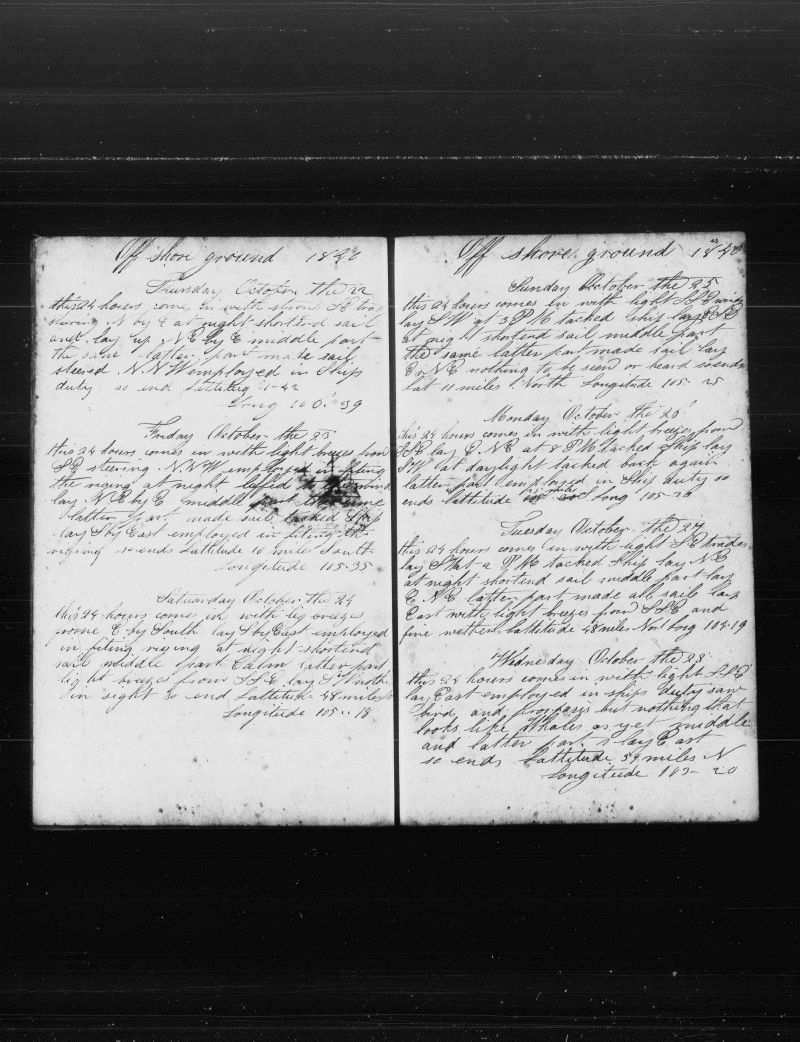 Off shore ground 1840
Thursday October the 22
this 24 hours come in with strong S E trades
stering N by E at night shortend sail
and lay up N E by E middle part
the same latter part made sail
steered N.N.W employed in Ships
duty so end Lattitude 1-42
Long 100-39
Friday October the 23
this 24 hours comes in with light breezes from
S E steering N.N.W employed in fiting
the riging at night luffed to the wind
lay N E by E middle part the same
latter part made sail tacked Ship
lay S by East employed in fiting the
riging so ends Lattitude 10 mile South
Longitude 105-35
Saturday October the 24
this 24 hours come in with lig breeze
frome E by South lay S by East employed
in fiting riging at night shortend
sail middle part Calm latter part
light breezes from S S E lay S W noth
in sight so end Lattitude 48 miles
Longitude 105-18
43
Off shore ground 1840
Sunday October the 25
this 24 hours comes in with light S S E winds
lay S W at 3 P M tacked Ship lay
at night shortend sail middle part
the same latter part made sail lay
E N E nothing to be seen or heard so ends
Lat 11 miles North Longitude 105-25
Monday October the 26
this 24 hours comes in with light breezes from
S S E lay E.N.E at 8 P M tacked Ship lay
S W at daylight tacked back again
latter part employed in Ship duty so
ends Lattitude miles Long 105-30
Tuesday October the 27
this 24 hours comes in with light S E trades
lay S at 2 P M tacked Ship lay N E
at night shortend sail middle part lay
E N E latter part made all sail lay
East with light breezes from S S E and
fine wether Lattitude 48 miles Nort Long 104-19
Wednesday October the 28
this 24 hours comes in with light S S E
lay East employed in ships duty saw
bird and porpases but nothing that
looks like Whales as yet middle
and latter part lay East
so ends Lattitude 54 miles N
Longitude 103-20